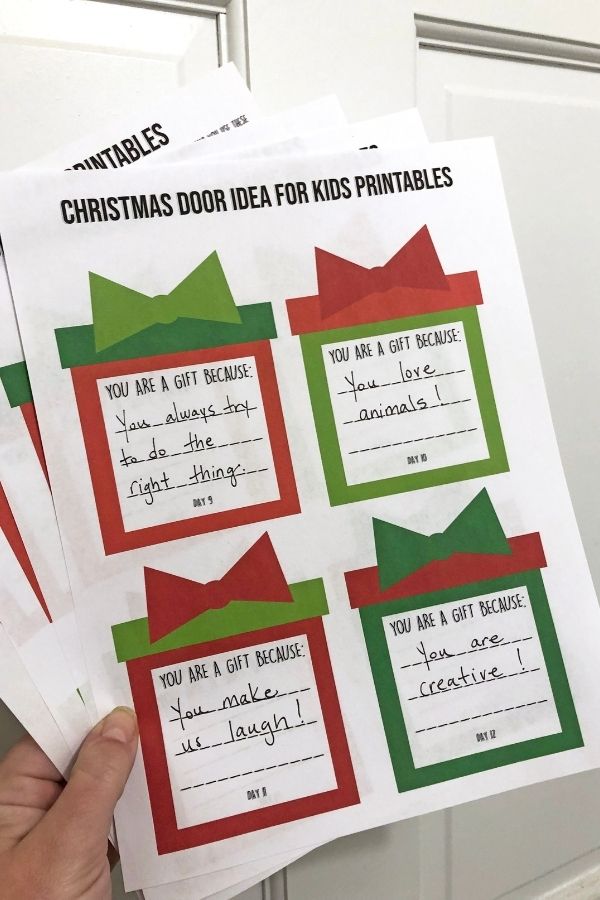 PRINTABLES
YOU USE THESE
CHRISTMAS DOOR IDEA FOR KIDS PRINTABLES
YOU ARE A GIFT BECAUSE:
You always try
to do the
right thing.
DAY 9
YOU ARE A GIFT BECAUSE:
You love
animals!
DAY 10
YOU ARE A GIFT BECAUSE:
You make
us laugh!
DAY 11
YOU ARE A GIFT BECAUSE:
You are
creative!
DAY 12